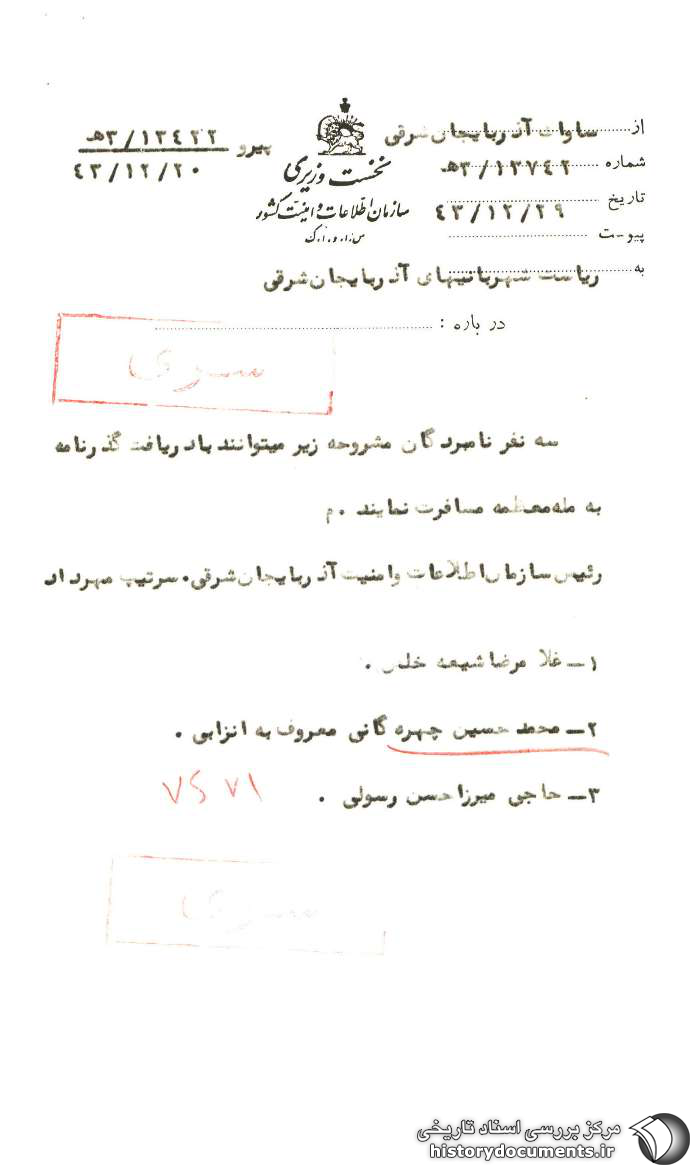 از ساواك آذربایجان شرقی
شماره ۳/۱۳۷۴۲هـ
تاریخ ۴۳/۱۲/۲۹
پیوست
به ریاست شهربانیهای آذربایجان شرقی
درباره :
نخست وزیری
سازمان اطلاعات و امنیت کشور
س.ا.و.ا.ک
پیرو ۳/۱۳۴۲۲هـ
۴۳/۱۲/۲۰
سری
سه نفر نامبردگان مشروحه زیر میتوانند بادریافت گذرنامه
به مله‌معظمه مسافرت نمایند . م
رئیس سازمان اطلاعات وامنیت آذربایجان شرقی. سرتیپ مهرداد
۱- غلامرضا شیعه خلص .
۲- محمد حسین چهره گانی معروف به انزابی .
۳- حاجی میرزا حسن رسولی .
سری
مرکز بررسی اسناد تاریخی
historydocuments.ir